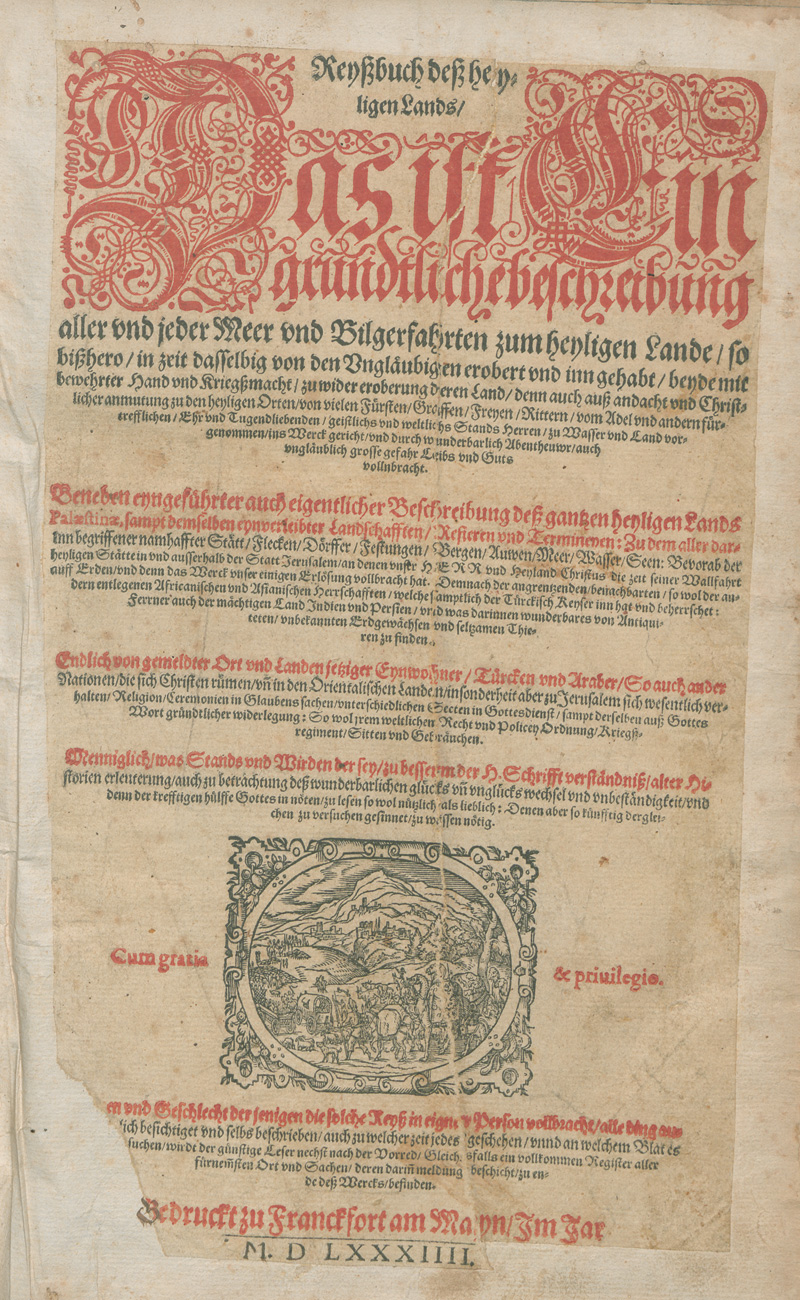 Reyßbuch deß hey-
ligen Lands/
Das ist Ein
gründtliche beschreibung
aller vnd jeder Meer vnd Bilgerfahrten zum heyligen Lande/ so
bißhero/ in zeit dasselbig von den Vngläubigen erobert vnd inn gehabt/ beyde mit
bewehrter Hand vnd Kriegßmacht/ zu wider eroberung deren Land/ denn auch auß andacht vnd Christ-
licher anmutung zu den heyligen Orten/ von vielen Fürsten/ Graffen/ Freyen/ Rittern/ vom Adel vnd andern für-
trefflichen/ Ehr vnd Tugendliebenden/ geistlichs vnd weltlichs Stands Herren/ zu Wasser vnd Land vor-
genommen/ ins Werck gericht/ vnd durch wunderbarlich Abentheuwr/ auch
vngläublich grosse gefahr Leibs vnd Guts
vollnbracht.
Beneben eyngeführter auch eigentlicher Beschreibung deß gantzen heyligen Lands
Palæstinæ, sampt demselben eynverleibter Landschafften/ Refieren vnd Termineyen: Zu dem aller dar-
inn begriffener namhaffter Stätt/ Flecken/ Dörffer/ Festungen/ Bergen/ Auwen/ Meer/ Wasser/ Seen: Bevorab der
heyligen Stätte in vnd ausserhalb der Statt Jerusalem/ an denen vnser HERR vnd Heyland Christus die zeit seiner Wallfahrt
auff Erden/ vnd denn das Werck vnser einigen Erlösung vollbracht hat. Demnach der angrentzenden/ benachbarten/ so wol der an-
dern entlegenen Africanischen vnd Asianischen Herrschafften/ welche samptlich der Türckisch Keyser inn hat vnd beherrschet:
Ferrner auch der mächtigen Land Indien vnd Persien/ vnd was darinnen wunderbares von Antiqui-
teten/ vnbekannten Erdgewächsen vnd seltzamen Thie-
ren zu finden.
Endlich von gemeldter Ort vnd Landen jetziger Eynwohner/ Türcken vnd Araber/ So auch ander
Nationen/ die sich Christen rümen/ vñ in den Orientalischen Landen/ insonderheit aber zu Jerusalem sich wesentlich ver-
halten/ Religion/ Ceremonien in Glaubens sachen/ vnterschiedlichen Secten in Gottesdienst/ sampt derselben auß Gottes
Wort gründtlicher widerlegung: So wol jrem weltlichen Recht vnd Policey Ordnung/ Kriegß-
regiment/ Sitten vnd Gebräuchen.
Menniglich/ was Stands vnd Wirden der sey/ zu besserm der H. Schrifft verständniß/ alter Hi-
storien erleuterung/ auch zu betrachtung deß wunderbarlichen glücks vñ vnglücks wechsel vnd vnbeständigkeit/ vnd
denn der krefftigen hülffe Gottes in nöten/ zu lesen so wol nützlich als lieblich: Denen aber so künfftig derglei-
chen zu versuchen gesinnet/ zu wissen nötig.
Cum gratia
& priuilegio.
en vnd Geschlecht der jenigen die solche Reyß in eigner Person vollbracht/ alle ding
ich besichtiget vnd selbs beschrieben/ auch zu welcher zeit jedes geschehen/ vnnd an welchem Blat es
suchen/ wirdt der günstige Leser nechst nach der Vorred/ Gleichsfalls ein vollkommen Register aller
fürnem̃sten Ort vnd Sachen/ deren dariñ meldung beschicht/ zu en-
de deß Wercks/ befinden.
Gedruckt zu Franckfort am Mayn/ Im Jar
M. D LXXXIIII.